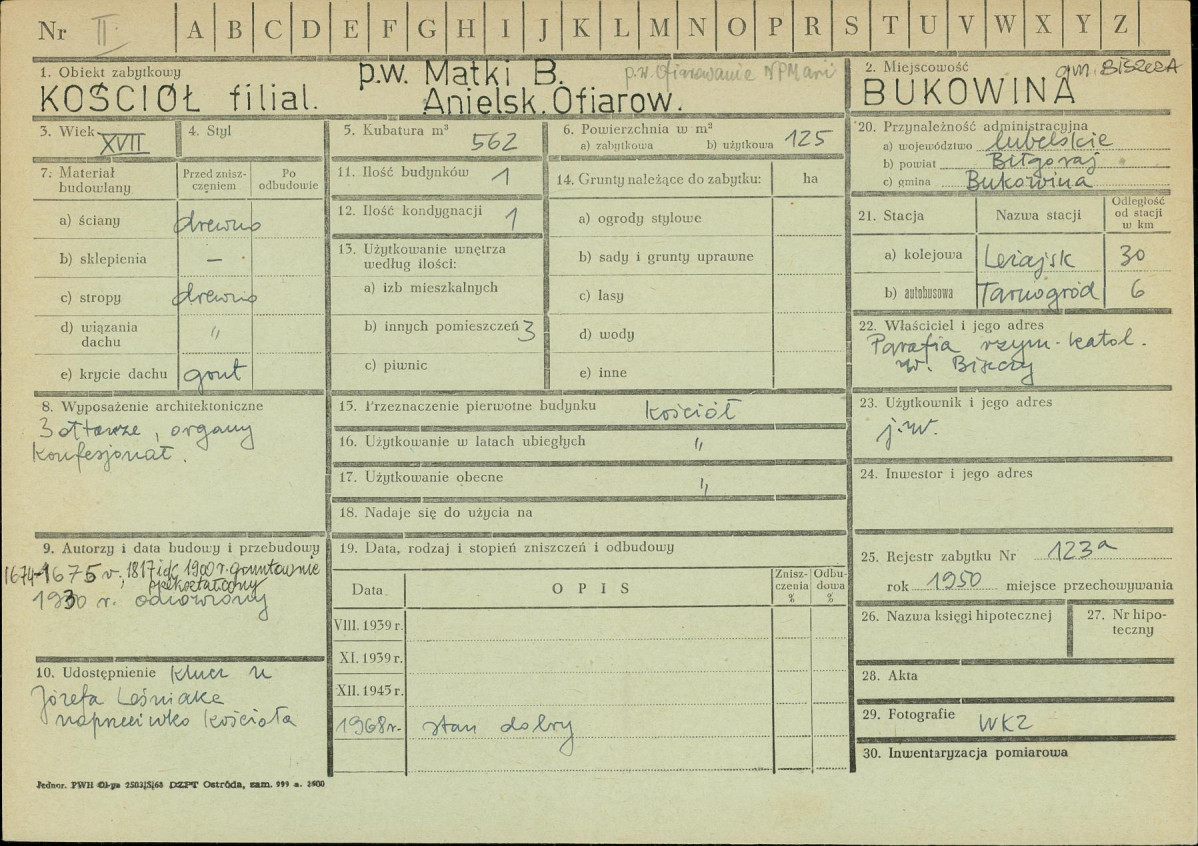 Nr II. A B C D E F G H I J K L M N O P R S T U V W X Y Z
1. Obiekt zabytkowy
KOŚCIÓŁ filial.
p.w. Matki B.
Anielsk. Ofiarow.
p.w. Ofiarowanie NPMarii
2. Miejscowość
gm. BISZCZA
BUKOWINA
3. Wiek XVII
4. Styl
5. Kubatura m³ 562
6. Powierzchnia w m²
a) zabytkowa b) użytkowa 125
7. Materiał budowlany
Przed zniszczeniem
Po odbudowie
a) ściany drewno
b) sklepienia —
c) stropy drewno
d) wiązania dachu "
e) krycie dachu gont
8. Wyposażenie architektoniczne
3 ołtarze, organy
konfesjonał.
9. Autorzy i data budowy i przebudowy
1674-1675 r., 1817 i 1900 r. gruntownie
przekształcony
1930 r. odnowiony
10. Udostępnienie klucz u
Józefa Leśniaka
naprzeciwko kościoła
11. Ilość budynków 1
12. Ilość kondygnacji 1
13. Użytkowanie wnętrza
według ilości:
a) izb mieszkalnych
b) innych pomieszczeń 3
c) piwnic
14. Grunty należące do zabytku: ha
a) ogrody stylowe
b) sady i grunty uprawne
c) lasy
d) wody
e) inne
15. Przeznaczenie pierwotne budynku kościół
16. Użytkowanie w latach ubiegłych "
17. Użytkowanie obecne "
18. Nadaje się do użycia na
19. Data, rodzaj i stopień zniszczeń i odbudowy
Data OPIS Zniszczenia % Odbudowa %
VIII. 1939 r.
XI. 1939 r.
XII. 1945 r.
1968 r. stan dobry
20. Przynależność administracyjna
a) województwo lubelskie
b) powiat Biłgoraj
c) gmina Bukowina
21. Stacja Nazwa stacji Odległość od stacji w km
a) kolejowa Leżajsk 30
b) autobusowa Tarnogród 6
22. Właściciel i jego adres
Parafia rzym. katol.
w. Biszczy
23. Użytkownik i jego adres
j.w.
24. Inwestor i jego adres
25. Rejestr zabytku Nr 123a
rok 1950 miejsce przechowywania
26. Nazwa księgi hipotecznej
27. Nr hipoteczny
28. Akta
29. Fotografie WKZ
30. Inwentaryzacja pomiarowa